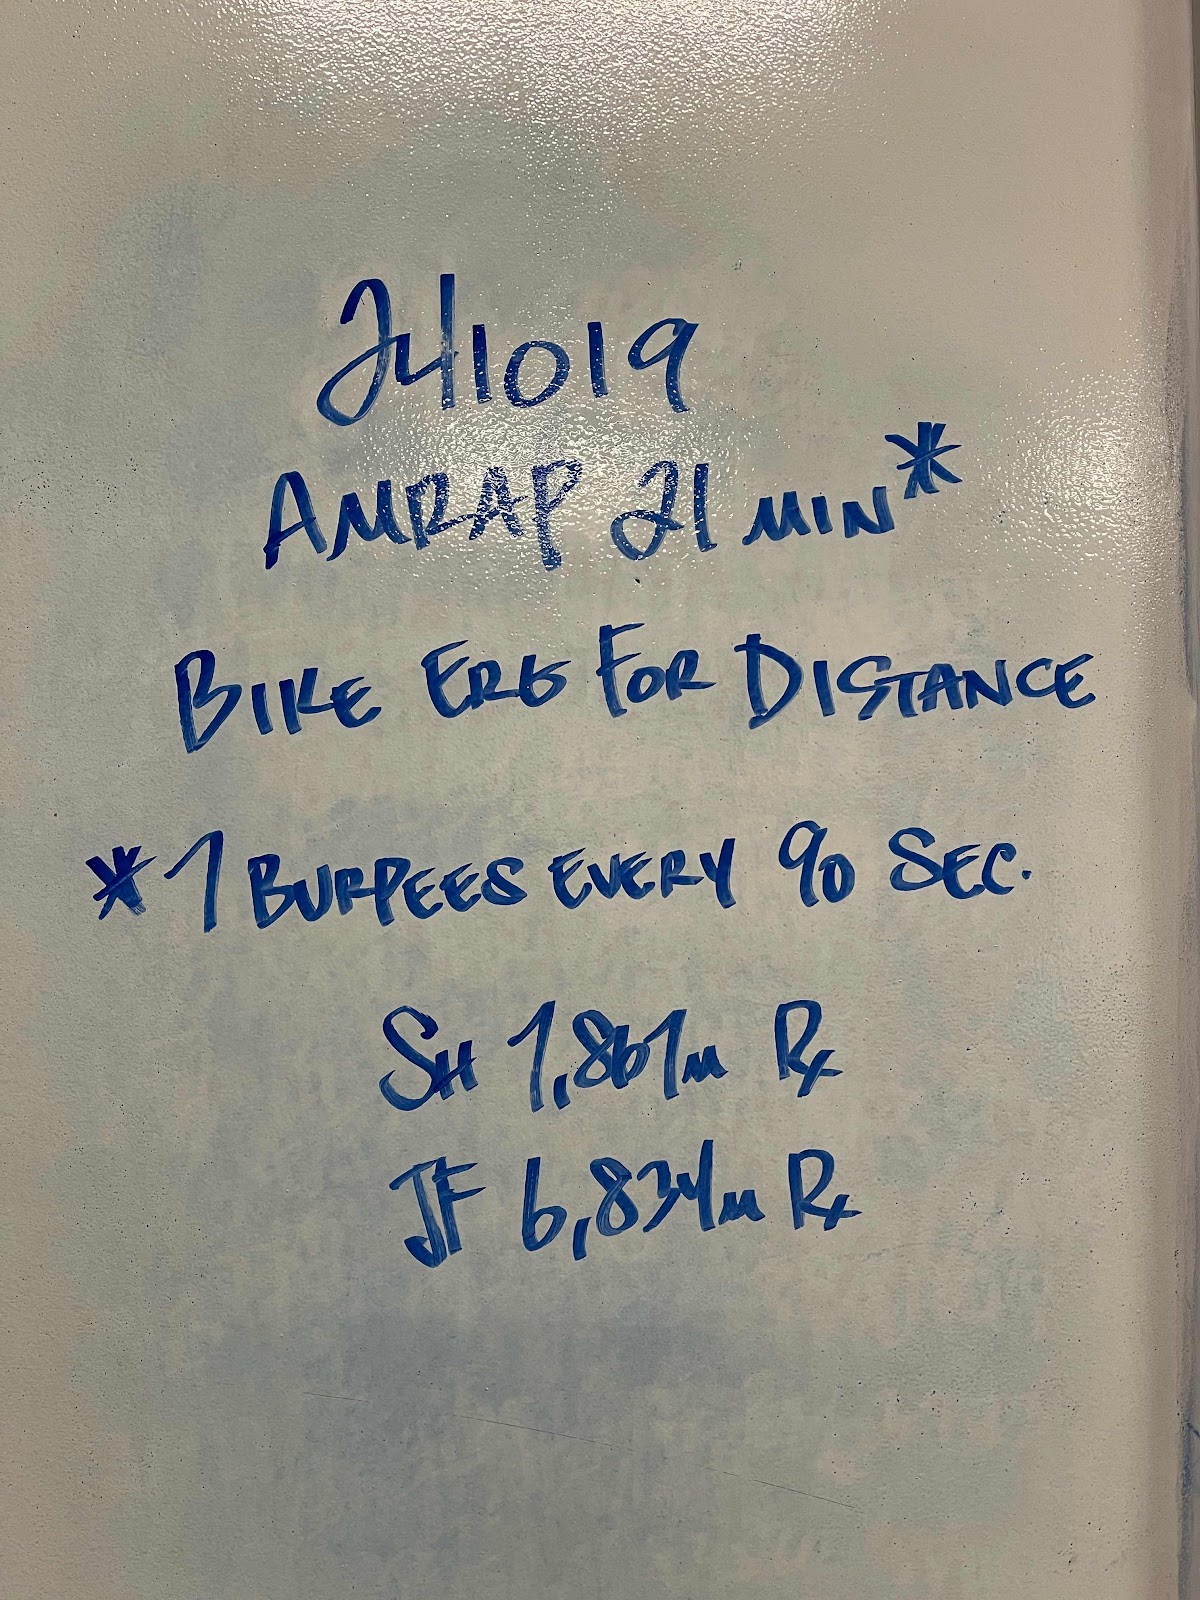 241019
AMRAP 21 MIN*
BIKE ERG FOR DISTANCE
*7 BURPEES EVERY 90 SEC.
SH 7,867m Rx
JF 6,834m Rx